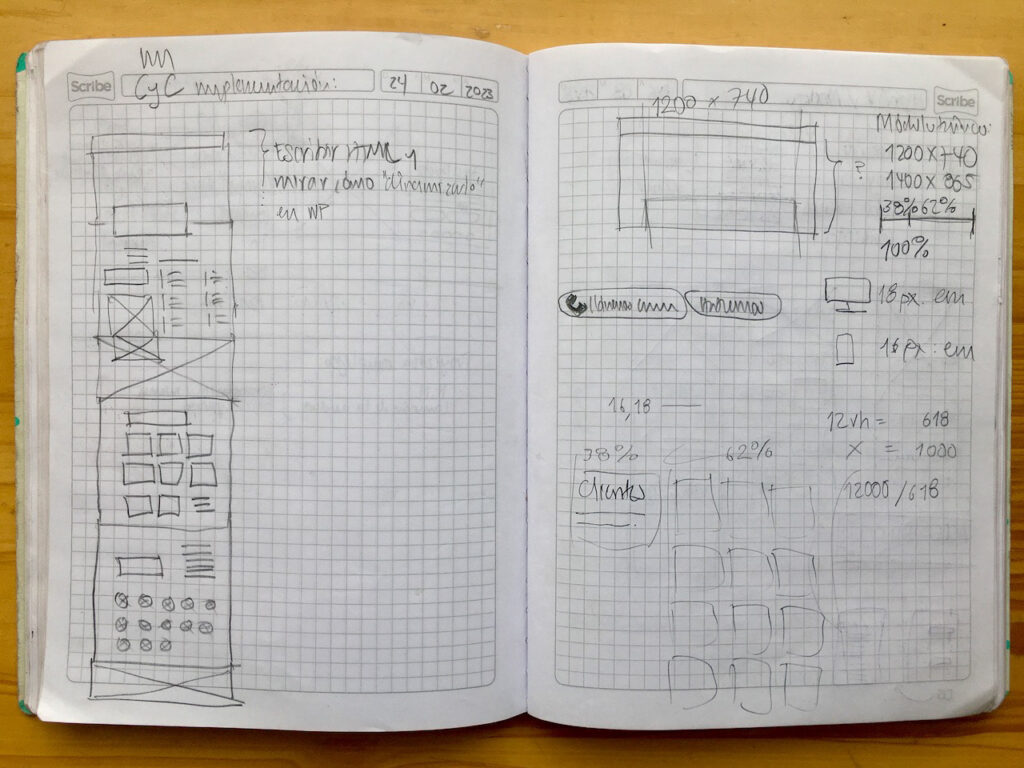 Scribe
CyC implementación:
24 02 2023
Escribir HTML y
mirar cómo "dinamizarlo"
en WP
Scribe
1200 x 740
?
1200 x 740
1400 x 865
38% 62%
100%
18 px. em
16 px. em
16,18
12vh = 618
x = 1000
12000/618
38% 62%
Clientes